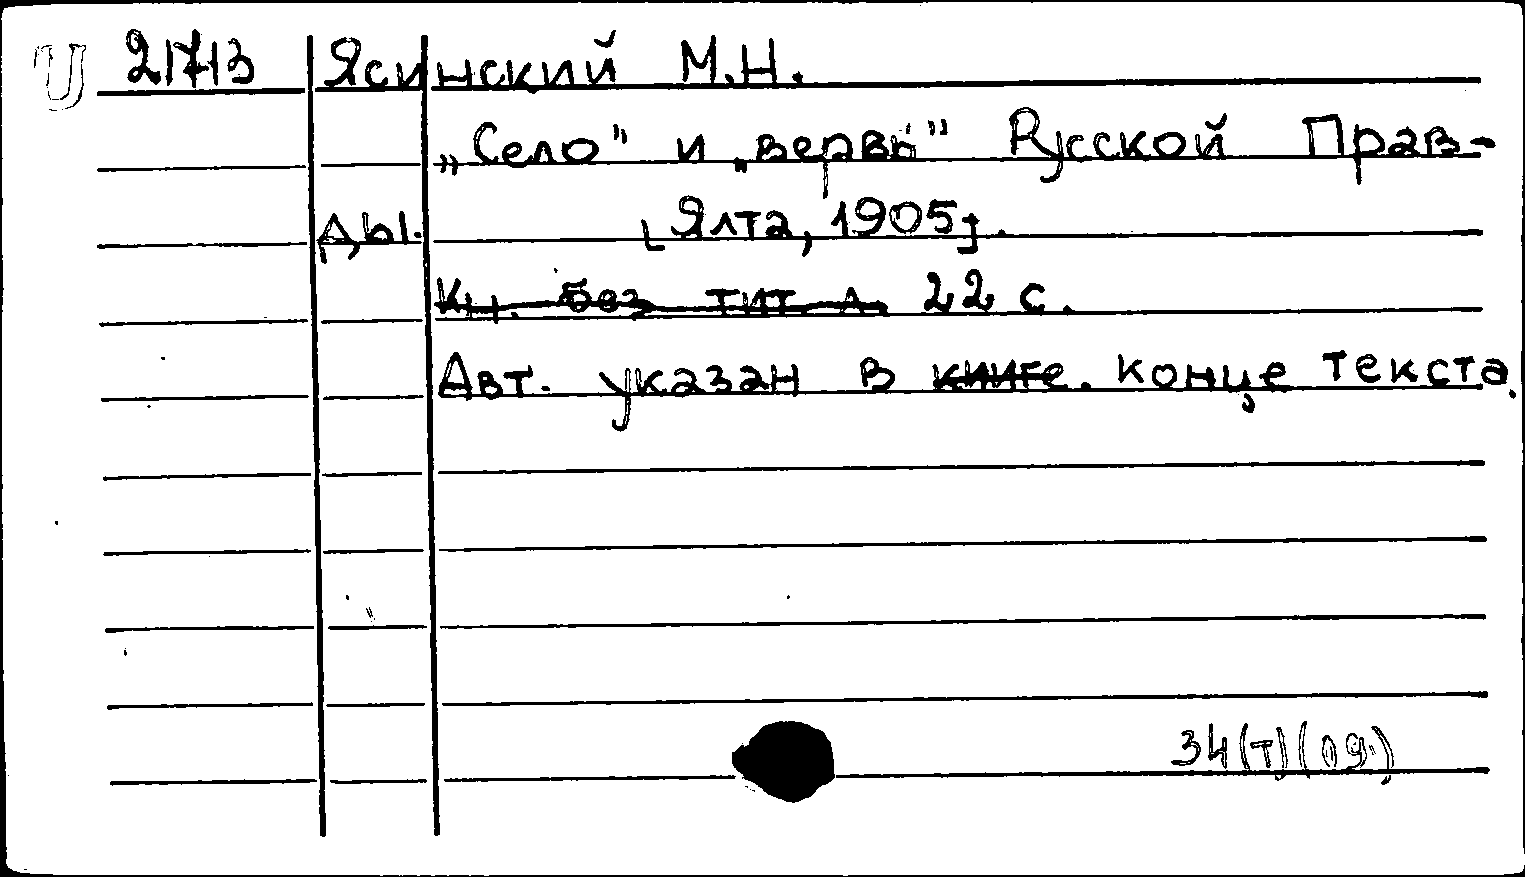 U 21713 Ясинский М.Н.
„Село" и „вервь" Русской Прав-
ды. [Ялта, 1905].
Кн. без тит. л. 22 с.
Авт. указан в книге. конце текста.
34(Т)(09)